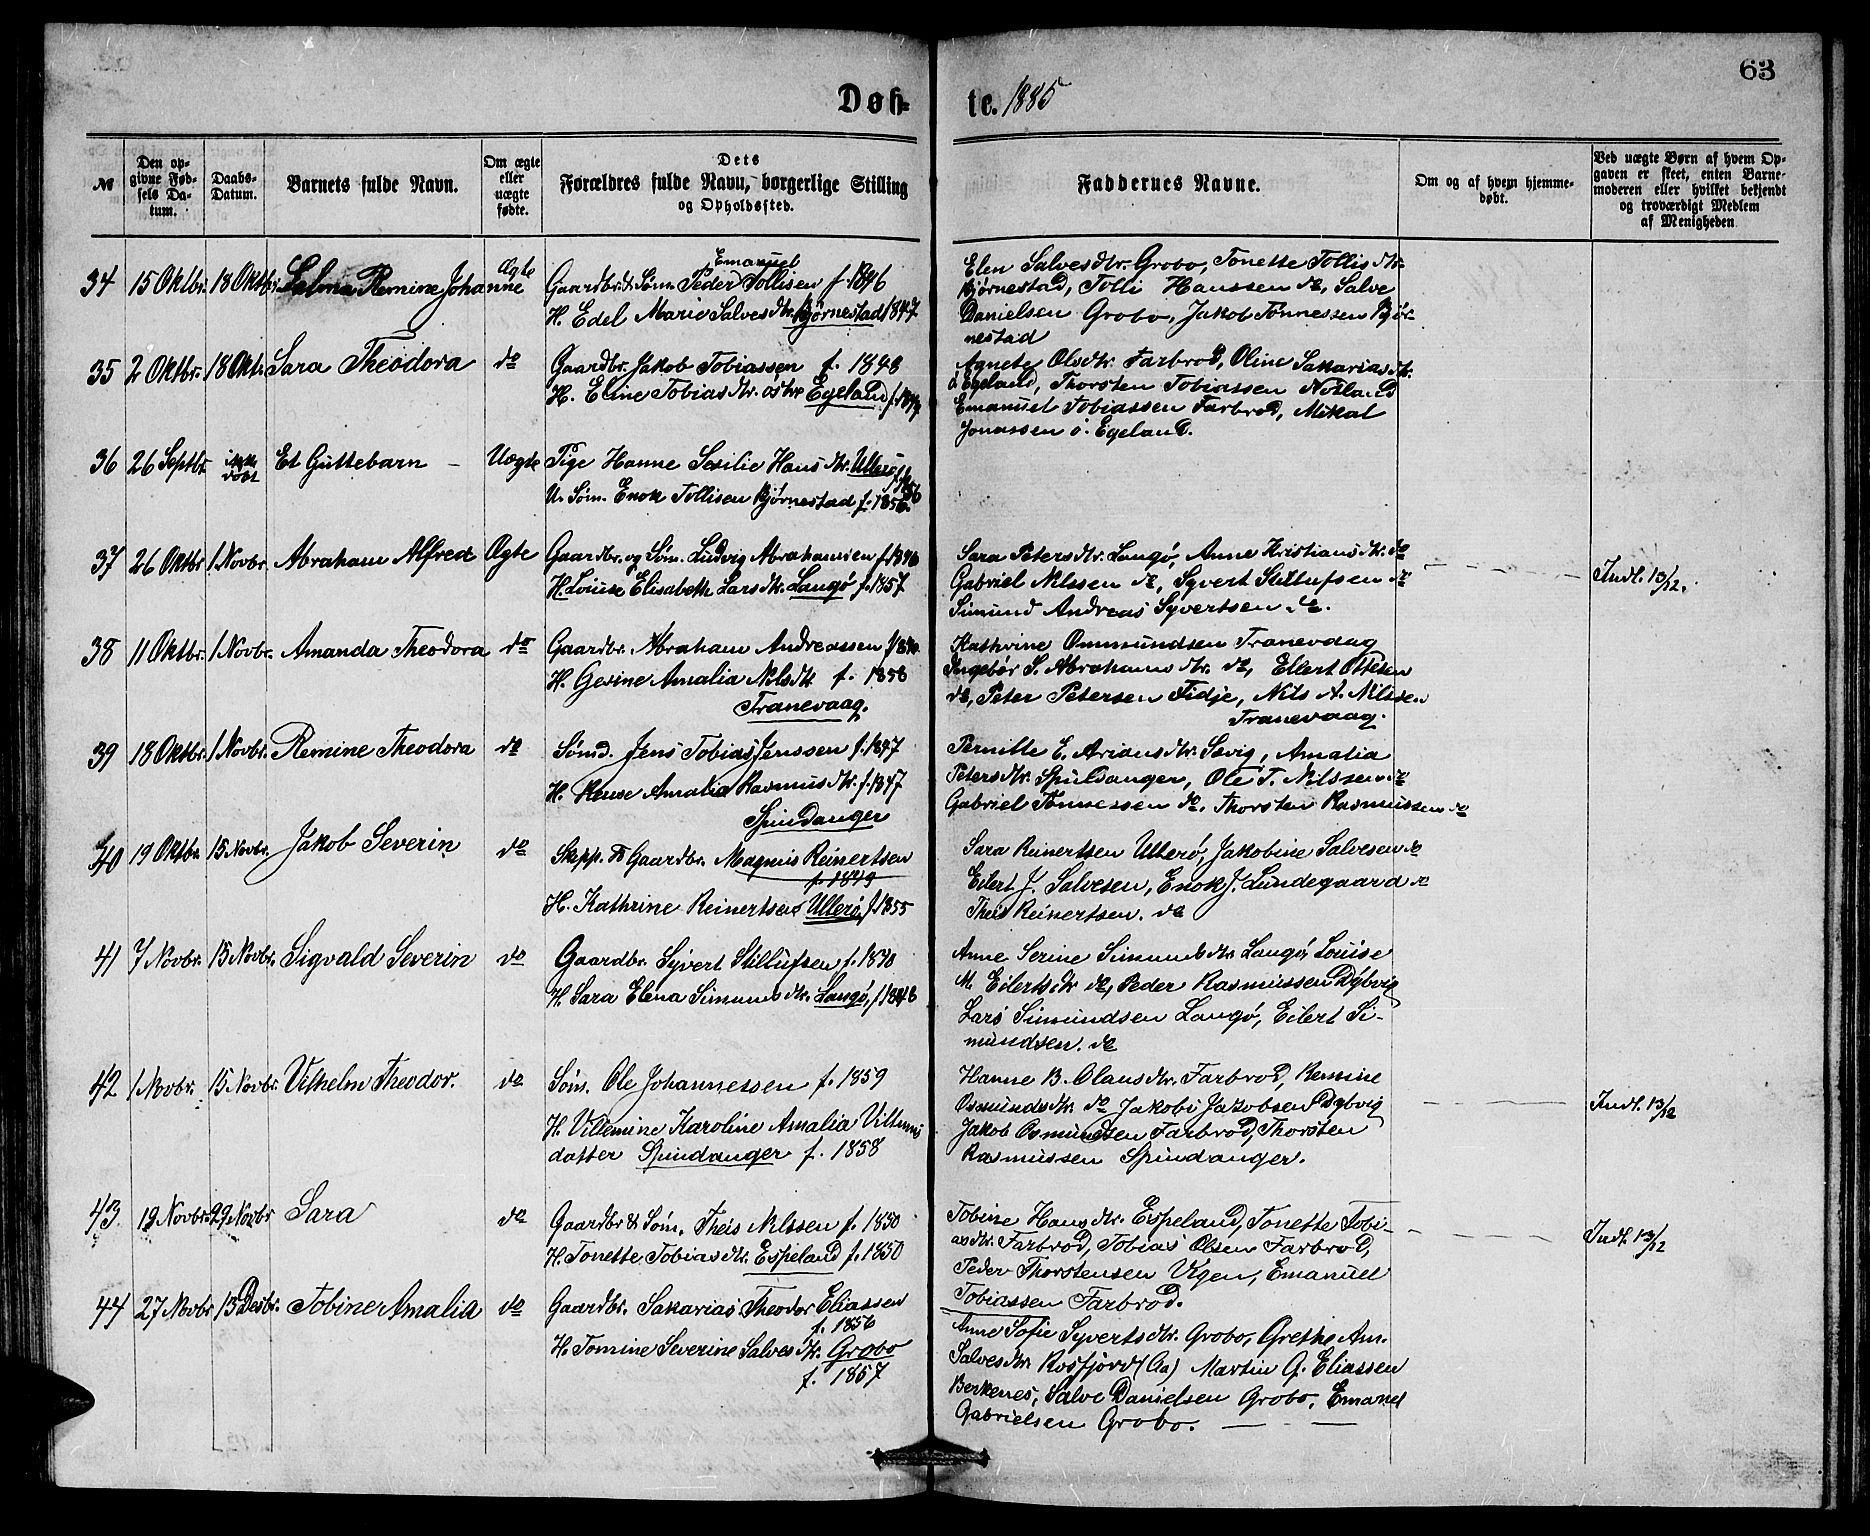 63
Døb- te. 1885
№
Den opgivne Fødsels Datum.
Daabs-Datum.
Barnets fulde Navn.
Om ægte eller uægte fødte.
Dets Forældres fulde Navn, borgerlige Stilling og Opholdssted.
Faddernes Navne.
Om og af hvem hjemmedøbt.
Ved uægte Børn af hvem Opgaven er skeet, enten Barnemoderen eller hvilket bekjendt og troværdigt Medlem af Menigheden
34 15 Oktbr. 18 Oktbr. Selma Remine Johanne Ægte
Emanuel
Gaardbr. & Søm. Peder Tollisen f. 1846
H. Edel Marie Salvesdtr. Bjørnestad 1847
Elen Salvesdtr. Grobo, Tonette Tollisdtr.
Bjørnestad, Tolli Hanssen do, Salve
Danielsen Grobo, Jakob Tønnessen Bjør
nestad
35 2 Oktbr. 18 Okt. Sara Theodora do
Gaardbr. Jakob Tobiassen f. 1848
H. Eline Tobiasdtr. østre Egeland f.
Agnete Olsdtr. Farbrod, Oline Sakariasdtr.
ø Egeland, Thorsten Tobiassen Nosland
Emanuel Tobiassen Farbrod, Mikal
Jonassen ø. Egeland.
36 26 Septbr. ikke døbt Et Guttebarn – Uægte
Pige Hanne Sesilie Hansdtr. Ullerø f. 1856
U. Søm. Enok Tollisen Bjørnestad f. 1856.
37 26 Oktbr 1 Novbr. Abraham Alfred Ægte
Gaardbr. og Søm. Ludvig Abrahamsen f. 1846
H. Lovise Elisabeth Larsdtr. Langø f. 1857
Sara Petersdtr. Langø, Anne Kristiansdtr. do
Gabriel Nilssen do, Syvert Stillufsen do
Simund Andreas Syvertsen do.
Indl. 13/12.
38 11 Oktbr. 1 Novbr. Amanda Theodora do
Gaardbr. Abraham Andreassen f. 1840
H. Gesine Amalia Nilsdtr f. 1858
Tranevaag.
Kathrine Ommundsen Tranevaag
Ingebør S. Abrahamsdtr. do, Eilert Ottesen
do, Peter Petersen Fidje, Nils A. Nilssen
Tranevaag.
39 18 Oktbr. 1 Novbr. Remine Theodora do
Sømd. Jens Tobias Jenssen f. 1847
H. Rense Amalia Rasmusdtr. f. 1847
Spindanger
Pernille E. Ariansdtr. Sevig, Amalia
Petersdtr. Spildanger, Ole T. Nilssen do
Gabriel Tønnessen do, Thorsten Rasmussen do
40 19 Oktbr 15 Novbr. Jakob Severin do
Skipp. & Gaardbr. Magnus Reinertsen
f. 1849
H. Kathrine Reinertsen Ullerø, f. 1855
Sara Reinertsen Ullerø, Jakobine Salvesen do
Eilert J. Salvesen, Enok J. Lundegaard do
Theis Reinertsen. do
41 7 Novbr. 15 Novbr. Sigvald Severin do
Gaardbr. Syvert Stillufsen f. 1840
H. Sara Elena Simundsdtr. Langø, f. 1848
Anne Serine Simundsdtr. Langø, Louise
M. Eilertsdtr do, Peder Rasmussen Dybvig
Lars Simundsen Langø, Eilert Si-
mundsen. do
42 1 Novbr. 15 Novbr. Vilhelm Theodor. do
Søm. Ole Johannessen f. 1859
H. Villemine Karoline Amalia Villums
datter Spindanger f. 1858
Hanne B. Olausdtr. Farbrod, Remine
Osmundsdtr. do Jakobi Jakobsen Dybvig
Jakob Osmundsen Farbrod, Thorsten
Rasmussen Spindanger.
Indl. 13/12
43. 19 Novbr. 29 Novbr Sara do
Gaardbr & Søm. Theis Nilssen f. 1850
H. Tonette Tobiasdtr. Espeland f. 1850
Tobine Hansdtr. Espeland, Tonette Tobi-
asdtr. Farbrod, Tobias Olsen Farbrod,
Peder Thorstensen Vigen, Emanuel
Tobiassen Farbrod.
Indl. 13/12
44 27 Novbr 13 Desbr. Tobine Amalia do
Gaardbr. Sakarias Theodor Eliassen
f. 1856
H. Tomine Severine Salvesdtr. Grobo
f. 1857
Anne Sofie Syvertsdtr. Grobo, Grethe Am.
Salvesdtr Rosfjord (Aa) Martin G. Eliassen
Berkenes, Salve Danielsen Grobo, Emanuel
Gabrielsen Grobo. — — —